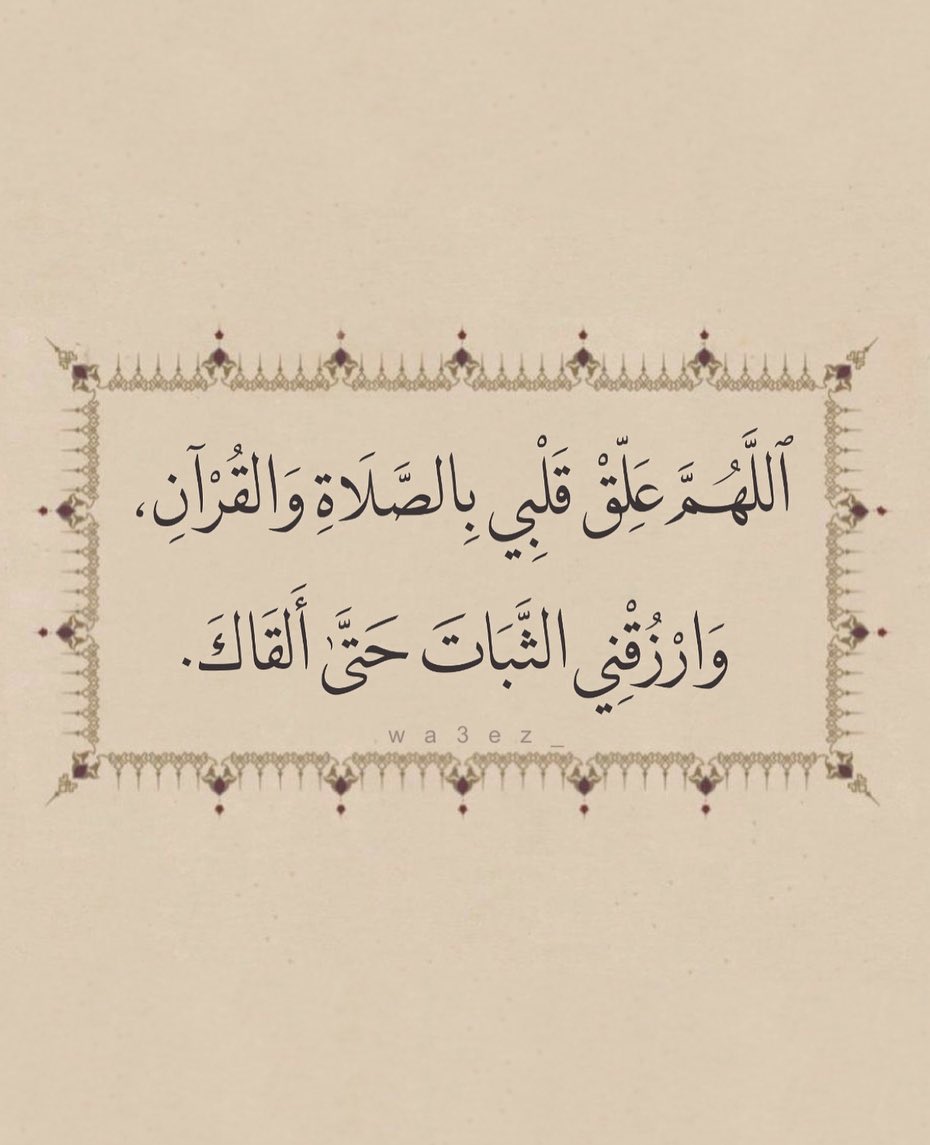 ٱللَّهُمَّ عَلِّقْ قَلْبِي بِالصَّلَاةِ وَالقُرْآنِ،
وَارْزُقْنِي الثَّبَاتَ حَتَّىٰ أَلقَاكَ.
wa3ez_